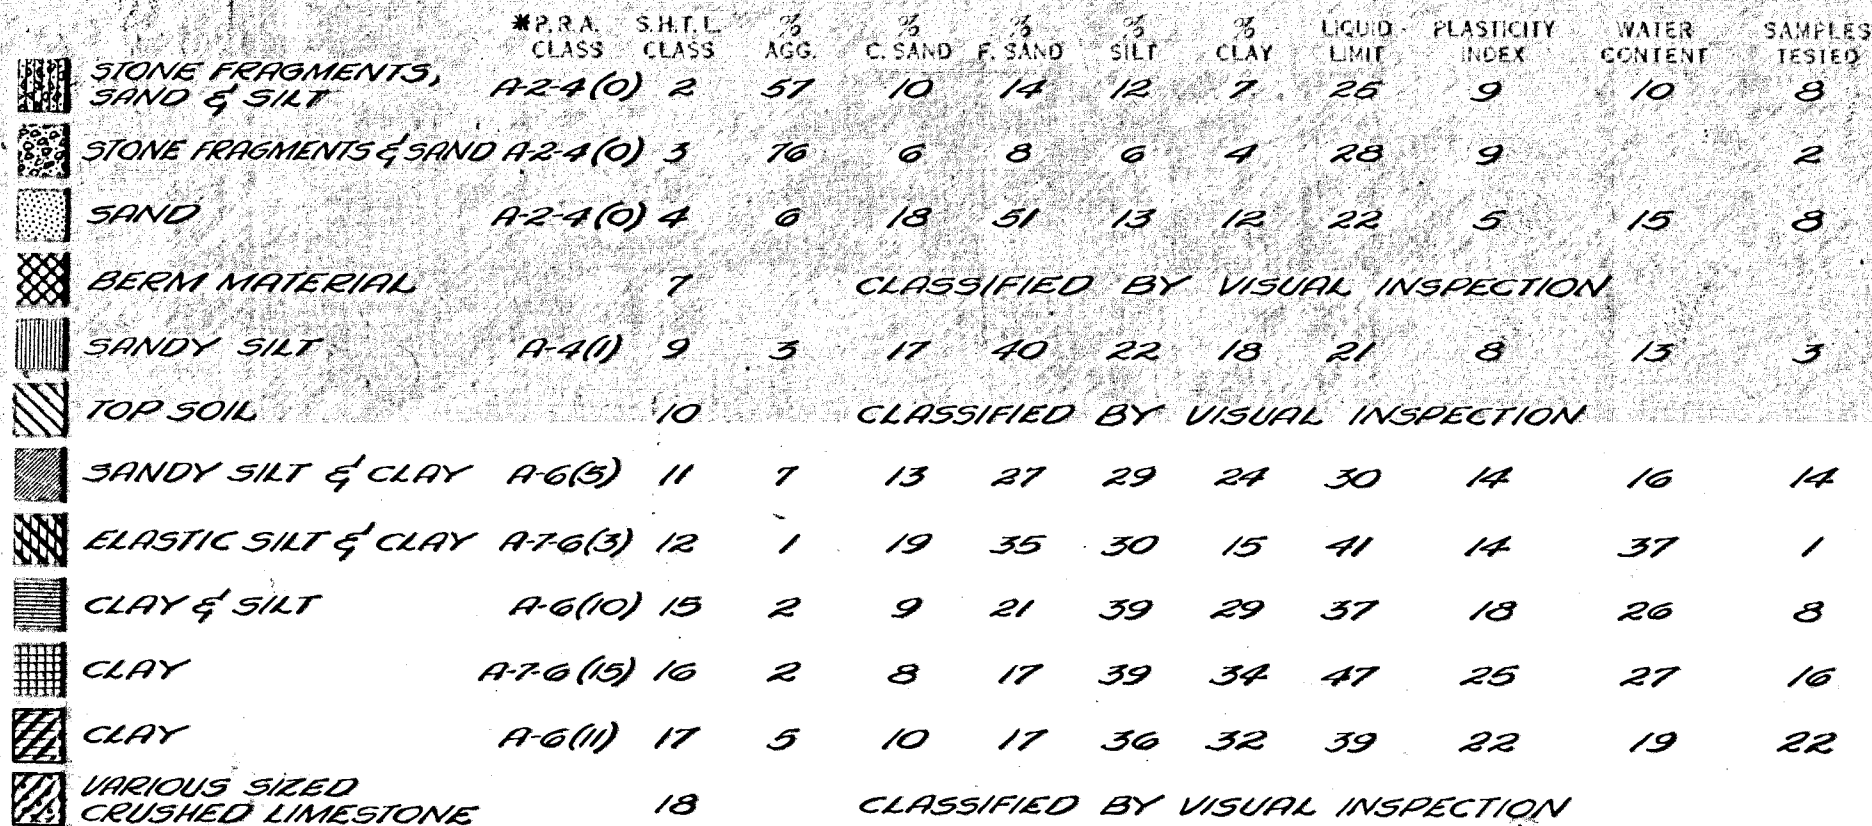 *P.R.A. CLASS S.H.T.L. CLASS % AGG. % C. SAND % F. SAND % SILT % CLAY LIQUID LIMIT PLASTICITY INDEX WATER CONTENT SAMPLES TESTED
STONE FRAGMENTS, SAND & SILT A-2-4(0) 2 57 10 14 12 7 26 9 10 8
STONE FRAGMENTS & SAND A-2-4(0) 3 76 6 8 6 4 28 9 2
SAND A-2-4(0) 4 6 18 51 13 12 22 5 15 8
BERM MATERIAL 7 CLASSIFIED BY VISUAL INSPECTION
SANDY SILT A-4(1) 9 3 17 40 22 18 21 8 13 3
TOP SOIL 10 CLASSIFIED BY VISUAL INSPECTION
SANDY SILT & CLAY A-6(5) 11 7 13 27 29 24 30 14 16 14
ELASTIC SILT & CLAY A-7-6(3) 12 1 19 35 30 15 41 14 37 1
CLAY & SILT A-6(10) 15 2 9 21 39 29 37 18 26 8
CLAY A-7-6(15) 16 2 8 17 39 34 47 25 27 16
CLAY A-6(11) 17 5 10 17 36 32 39 22 19 22
VARIOUS SIZED CRUSHED LIMESTONE 18 CLASSIFIED BY VISUAL INSPECTION